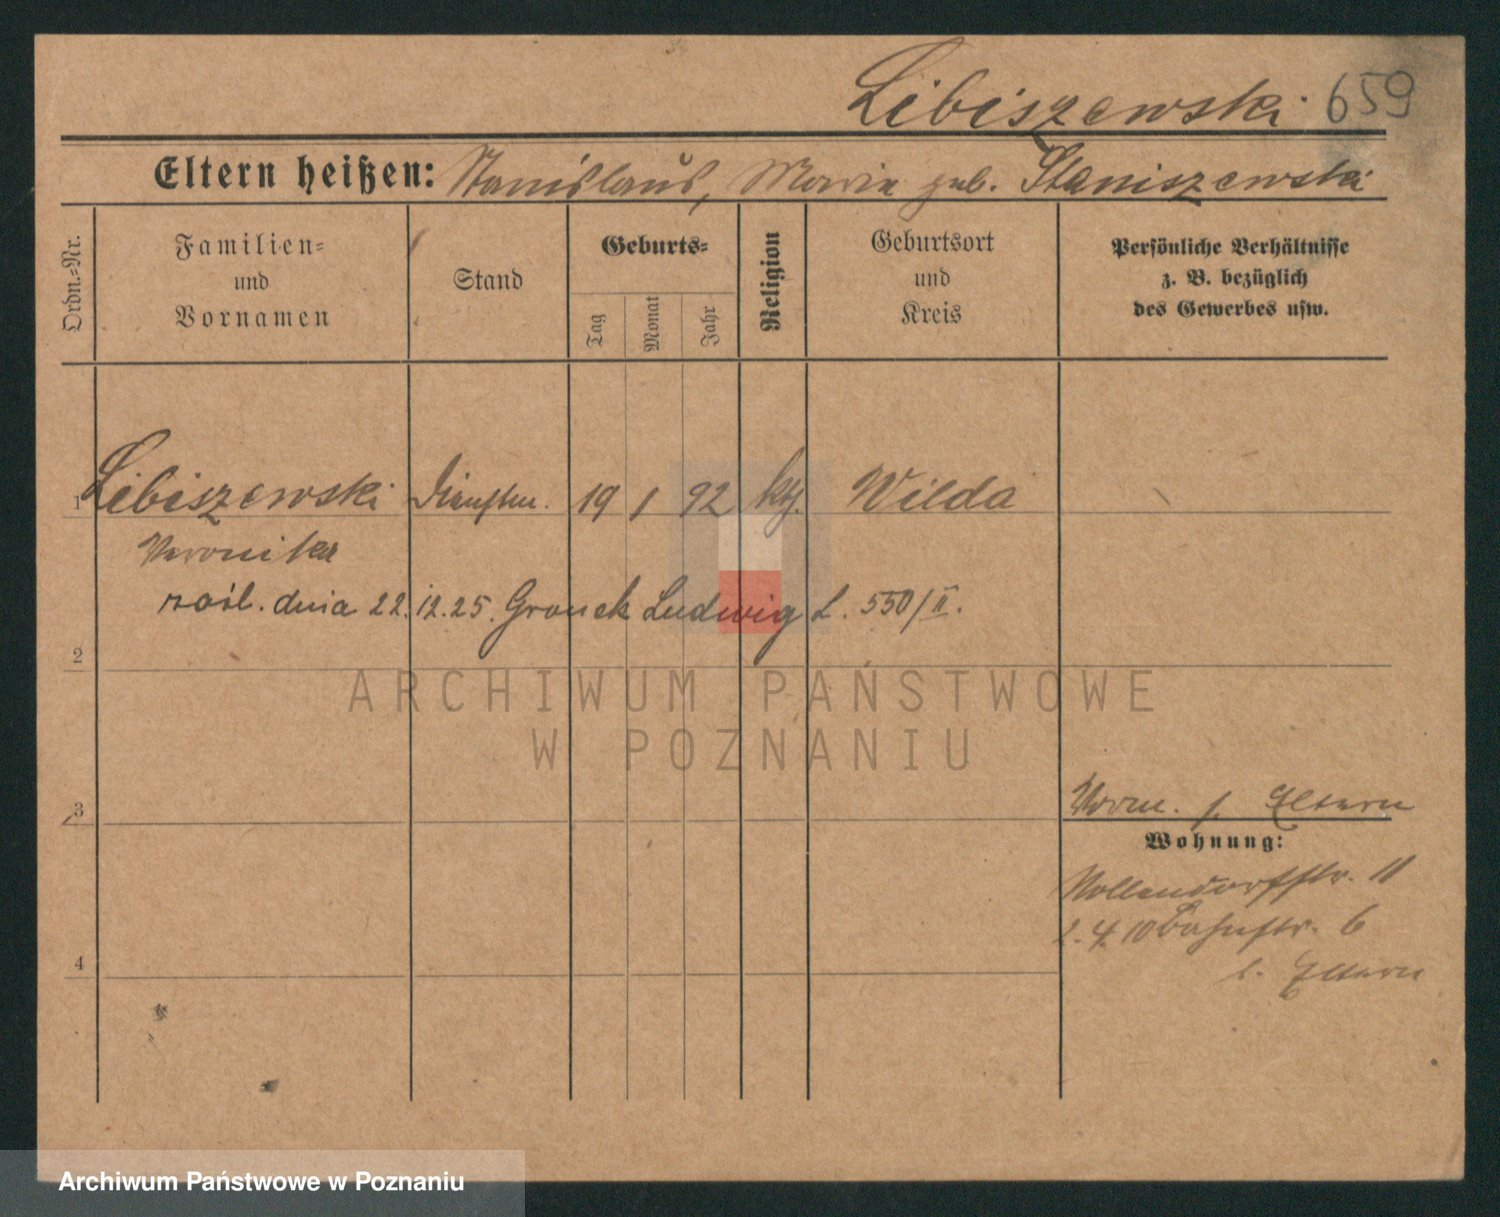 Libiszewski 659
Eltern heißen: Stanislaus, Maria geb. Staniszewska
Ordn.-Nr.
Familien-
und
Vornamen
Stand
Geburts-
Tag
Monat
Jahr
Religion
Geburtsort
und
Kreis
Persönliche Verhältnisse
z. B. bezüglich
des Gewerbes usw.
1 Libiszewski Dienstm. 19 1 92 kth. Wilda
Veronika
zaśl. dnia 22.12.25. Gronek Ludwig L. 550/II.
2
ARCHIWUM PAŃSTWOWE
W POZNANIU
3
Vorm. s. Eltern
Wohnung:
Nollendorfstr. 11
2.4.10 Bahnstr. 6
b. Eltern
4
Archiwum Państwowe w Poznaniu